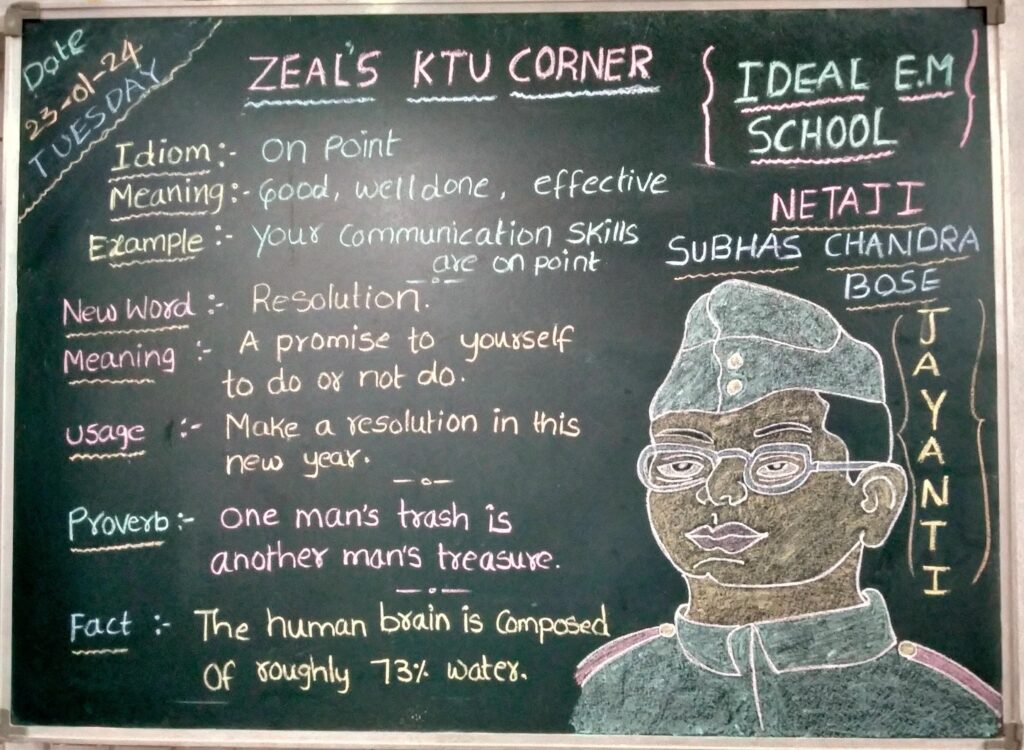 Date
23-01-24
TUESDAY
ZEAL'S KTU CORNER
IDEAL E.M
SCHOOL
Idiom:- On Point
Meaning:- Good, welldone, effective
Example:- Your Communication Skills
are on point
New Word:- Resolution.
Meaning:- A promise to yourself
to do or not do.
Usage:- Make a resolution in this
new year.
Proverb:- One man's trash is
another man's treasure.
Fact:- The human brain is Composed
Of roughly 73% water.
NETAJI
SUBHAS CHANDRA
BOSE
JAYANTI